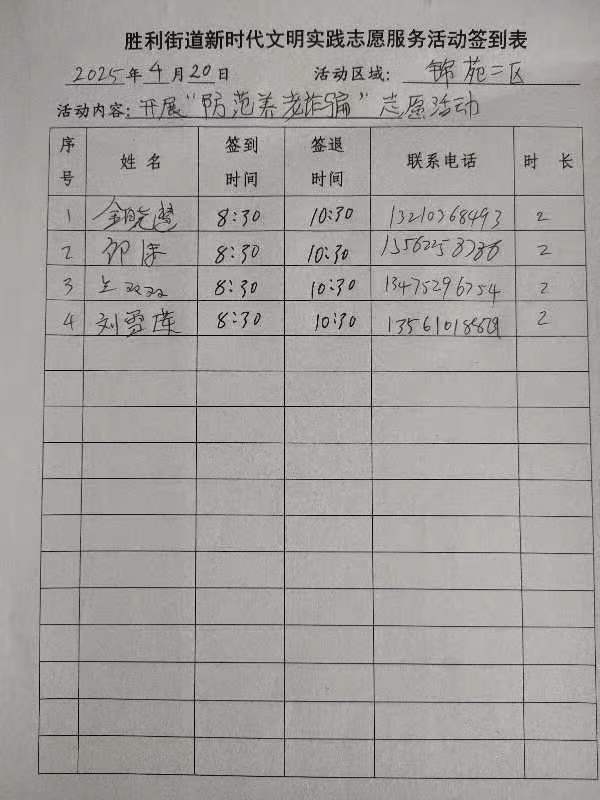 胜利街道新时代文明实践志愿服务活动签到表
2025年4月20日 活动区域: 锦苑二区
活动内容: 开展"防范养老诈骗"志愿活动
序号 姓名 签到时间 签退时间 联系电话 时长
1 8:30 10:30 13210368493 2
2 8:30 10:30 2
3 8:30 10:30 13475296754 2
4 刘雪莲 8:30 10:30 2